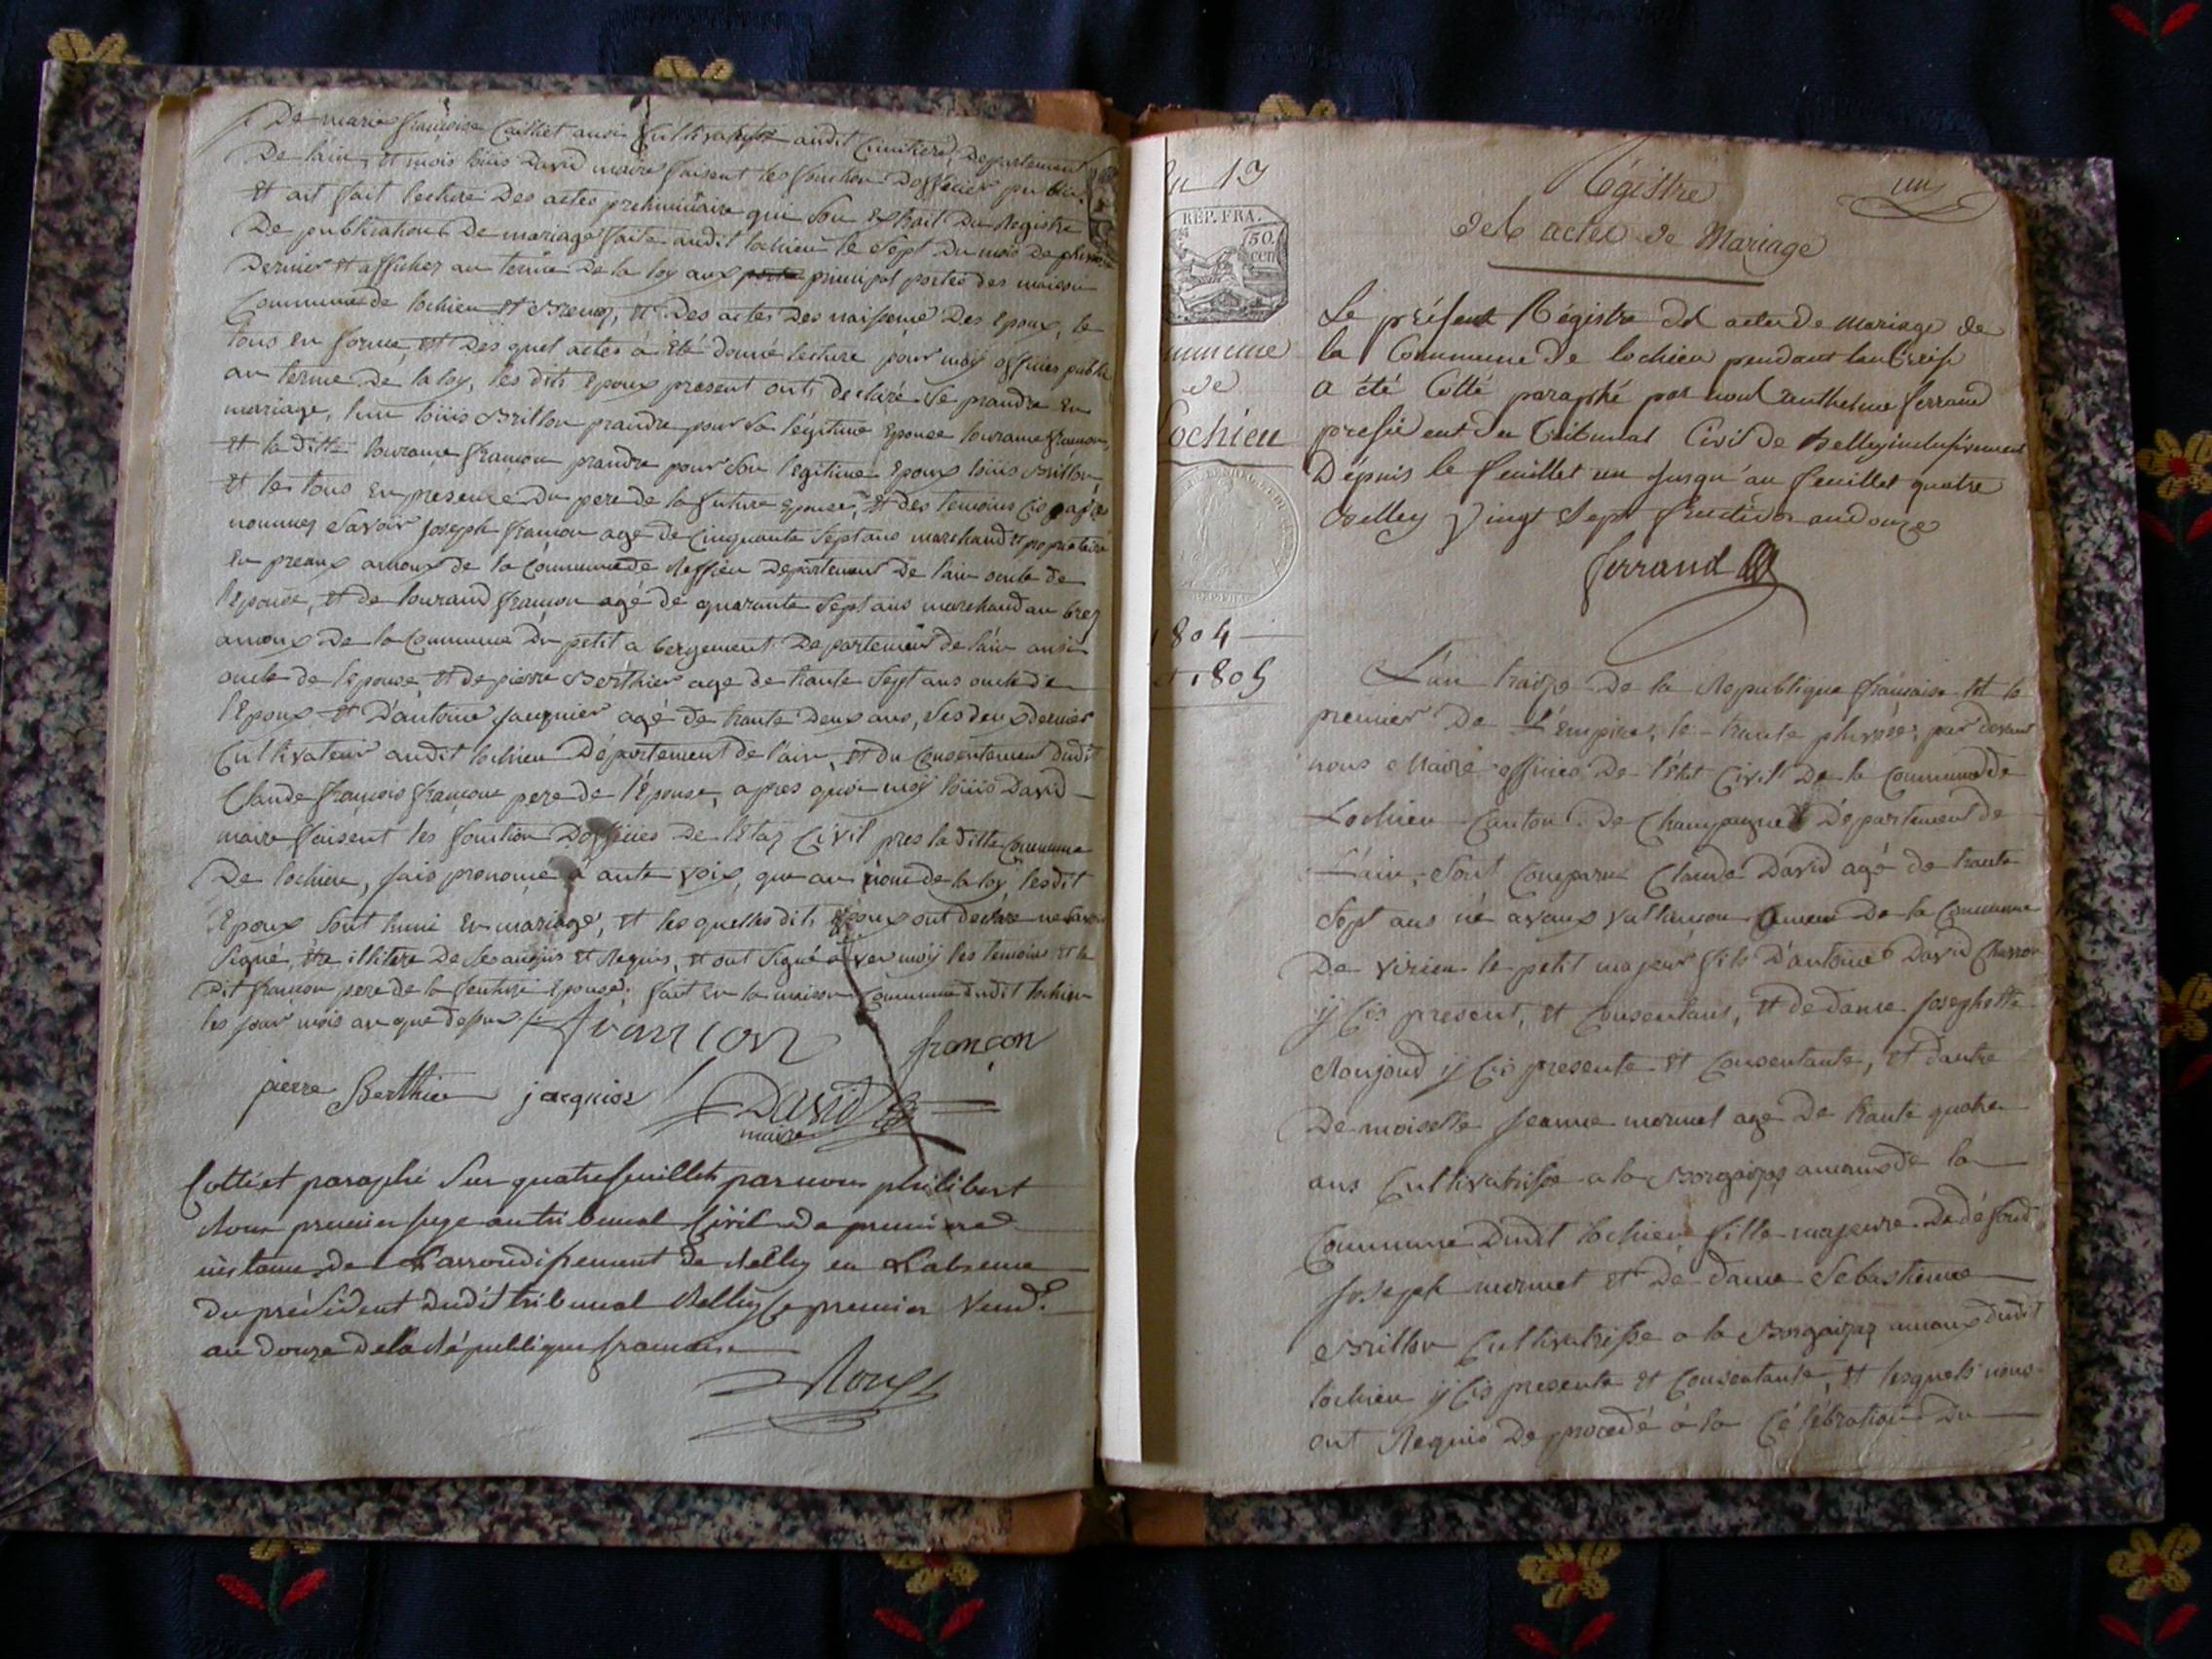 De marie françoise Caillet aussi Cultivatrice audit Departement
De lain, Et mois loüis David maire faisent les fonction Dofficier public
Et ait fait lecture Des actes preliminaire qui Son Extrait Du Registre
De publications De mariage faite audit lochieu le Sept Du mois De
Dernier Et afficher au terme De la loy aux porte principal portes des maison
Commune de lochieu Et Et Des actes Des naissance Des Epoux, le
tous En forme, Et Des quel actes à été donné lecture pour moÿ officies public
au terme De la loy, les dits Epoux present onts declaré Se prandre En
mariage, lun loüis Brillon prandre pour Sa légitime Epouse
Et la ditte françon prandre pour Son legitime Epoux loüis Brillon,
Et les tous En presence Du pere de la future Epouse, Et des temoins
nommes Savoir joseph françon agé de Cinquante Sept ans marchand Et propriétaire
En preaux de la Commune de Departement De lain oncle de
lEpouse, Et de françon agé de quarante Sept ans marchand au
De la Commune Du petit a bergement Departement de lain ausi
oncle de lEpouse, Et de pierre Berthier age de trante Sept ans oncle de
lEpoux Et D'antoine jaquier agé de trante Deux ans, les deux dernier
Cultivateur audit lochieu Département de l'ain, Et du Consentement dudit
Claude françois françon pere de l'Epouse, apres quoi moÿ loüis David
maire faisent les fonction Dofficies De l'Etaz Civil pres la ditte Commune
De lochieu, fais prononcé à aute voix, que au nom de la loy les dit
Epoux Sont hunie En mariage, Et les quelles dits Epoux ont declaré ne Savoir
Signé, Etre illitere De Enquis Et Requis, Et ont Signé avec moÿ les temoins Et le
Dit françon pere de la future Epouse. fait En la maison Commune dudit lochieu
les jour mois an que dessus
françon françon
pierre Berthier jacquier David
maire
Cotté et paraphé Sur quatre feuillets par nous philibert
premier juge au tribunal Civil de premiere
instance de Larrondissement de Belley en Labsence
du président dudit tribunal Belley le premier Vend.e
an douze de la République francaise
an 13
RÉP. FRA.
50.
cen
Commune
de
Lochieu
1804
et 1805
Régistre un
des actes de Mariage
Le présent Régistre des actes de mariage de
la Commune de lochieu pendant lan treise
a été Cotté paraphé par nous anthelme ferrand
president du tribunal Civil de Belley inclusivement
Dépuis le feuillet un jusqu'au feuillet quatre
Belley vingt Sept fructidor an douze
ferrand
L'an traize De la Republique française Et le
premier De L'Empire, le trante pluviose, par devant
nous Maire officies De l'état Civil De la Commune de
Lochieu Canton De Champagne Département de
L'ain, Sont Comparu Claude David agé de trante
Sept ans né De la Commune
De virieu le petit majeur fils D'antoine David
ÿ Cis present, Et Consentant, Et de dame Josephette
Monjoud ÿ Cis presente Et Consentante, Et dautre
De moiselle jeanne mornet age De trante quatre
ans Cultivatrisse a la de la
Commune Dudit lochieu fille majeure De défund
joseph mornet Et De Dame Sebastienne
Brillon Cultivatrisse a la dudit
lochieu ÿ Cis presente Et Consentante, Et lesquels nous
ont Requis De procedé à la Célébration Du